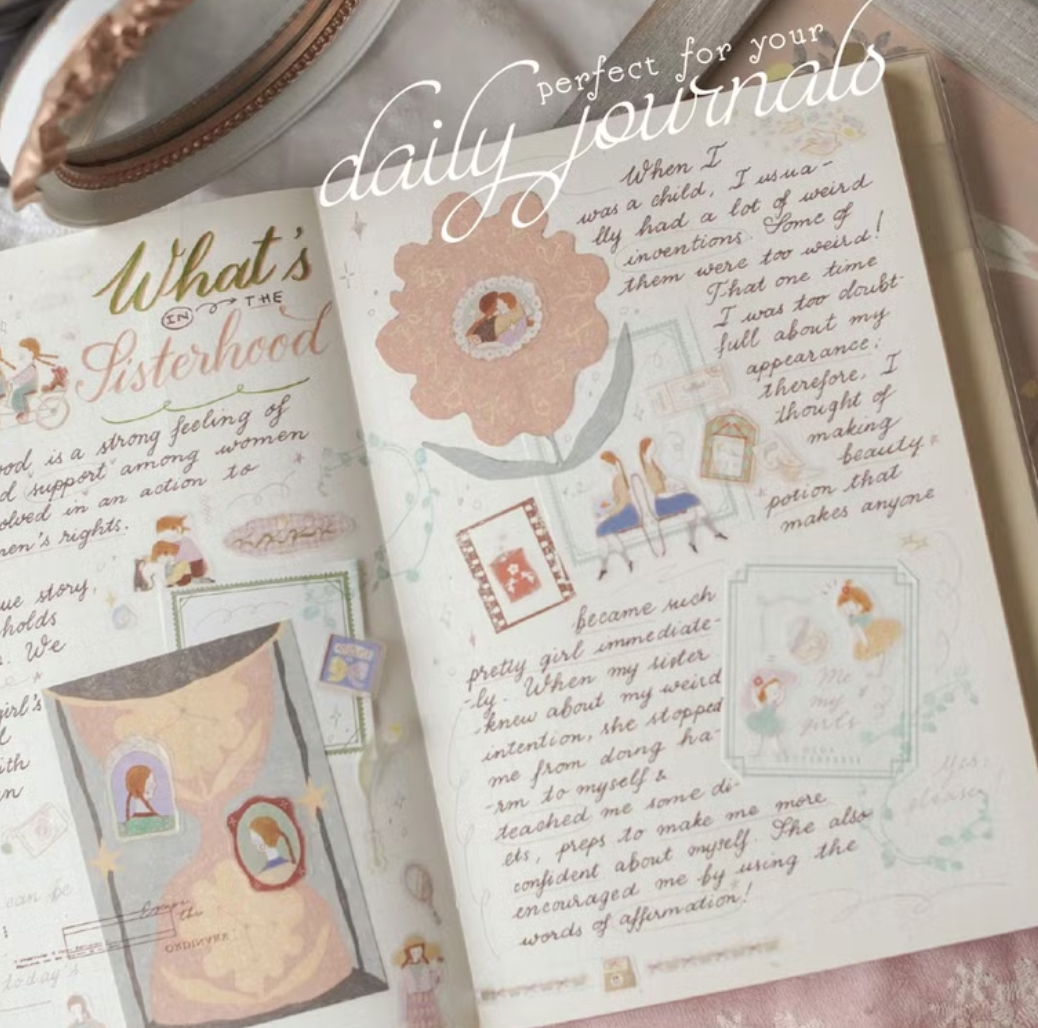 perfect for your
daily journals
What's
IN THE
Sisterhood
ood is a strong feeling of
d support among women
olved in an action to
en's rights.
ue story,
holds
. We
girl's
ith
n
can be
today's
ORDINARY
When I
was a child, I usua-
lly had a lot of weird
inventions. Some of
them were too weird!
That one time
I was too doubt-
full about my
appearance;
therefore, I
thought of
making
beauty
potion that
makes anyone
became such
pretty girl immediate-
-ly. When my sister
knew about my weird
intention, she stopped
me from doing ha-
-rm to myself &
teached me some di-
ets, preps to make me more
confident about myself. She also
encouraged me by using the
words of affirmation!
Me
my
girls